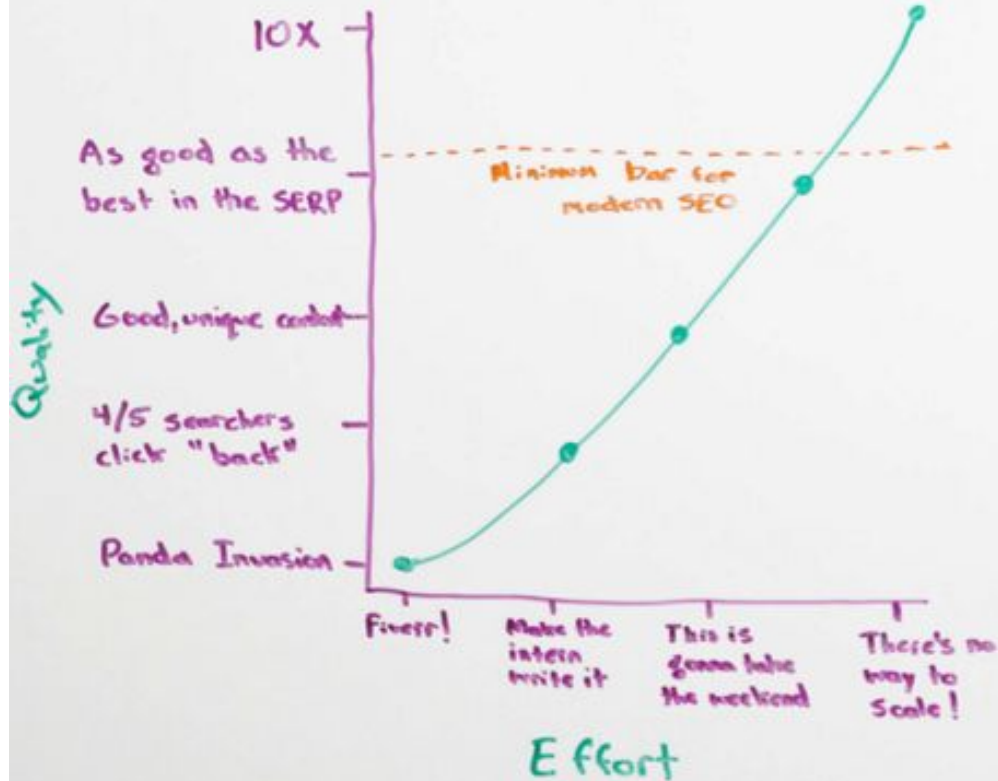 10X
As good as the
best in the SERP
Minimum bar for
modern SEO
Good, unique content
Quality
4/5 searchers
click "back"
Panda Invasion
Fiverr!
Make the
intern
write it
This is
gonna take
the weekend
There's no
way to
scale!
Effort